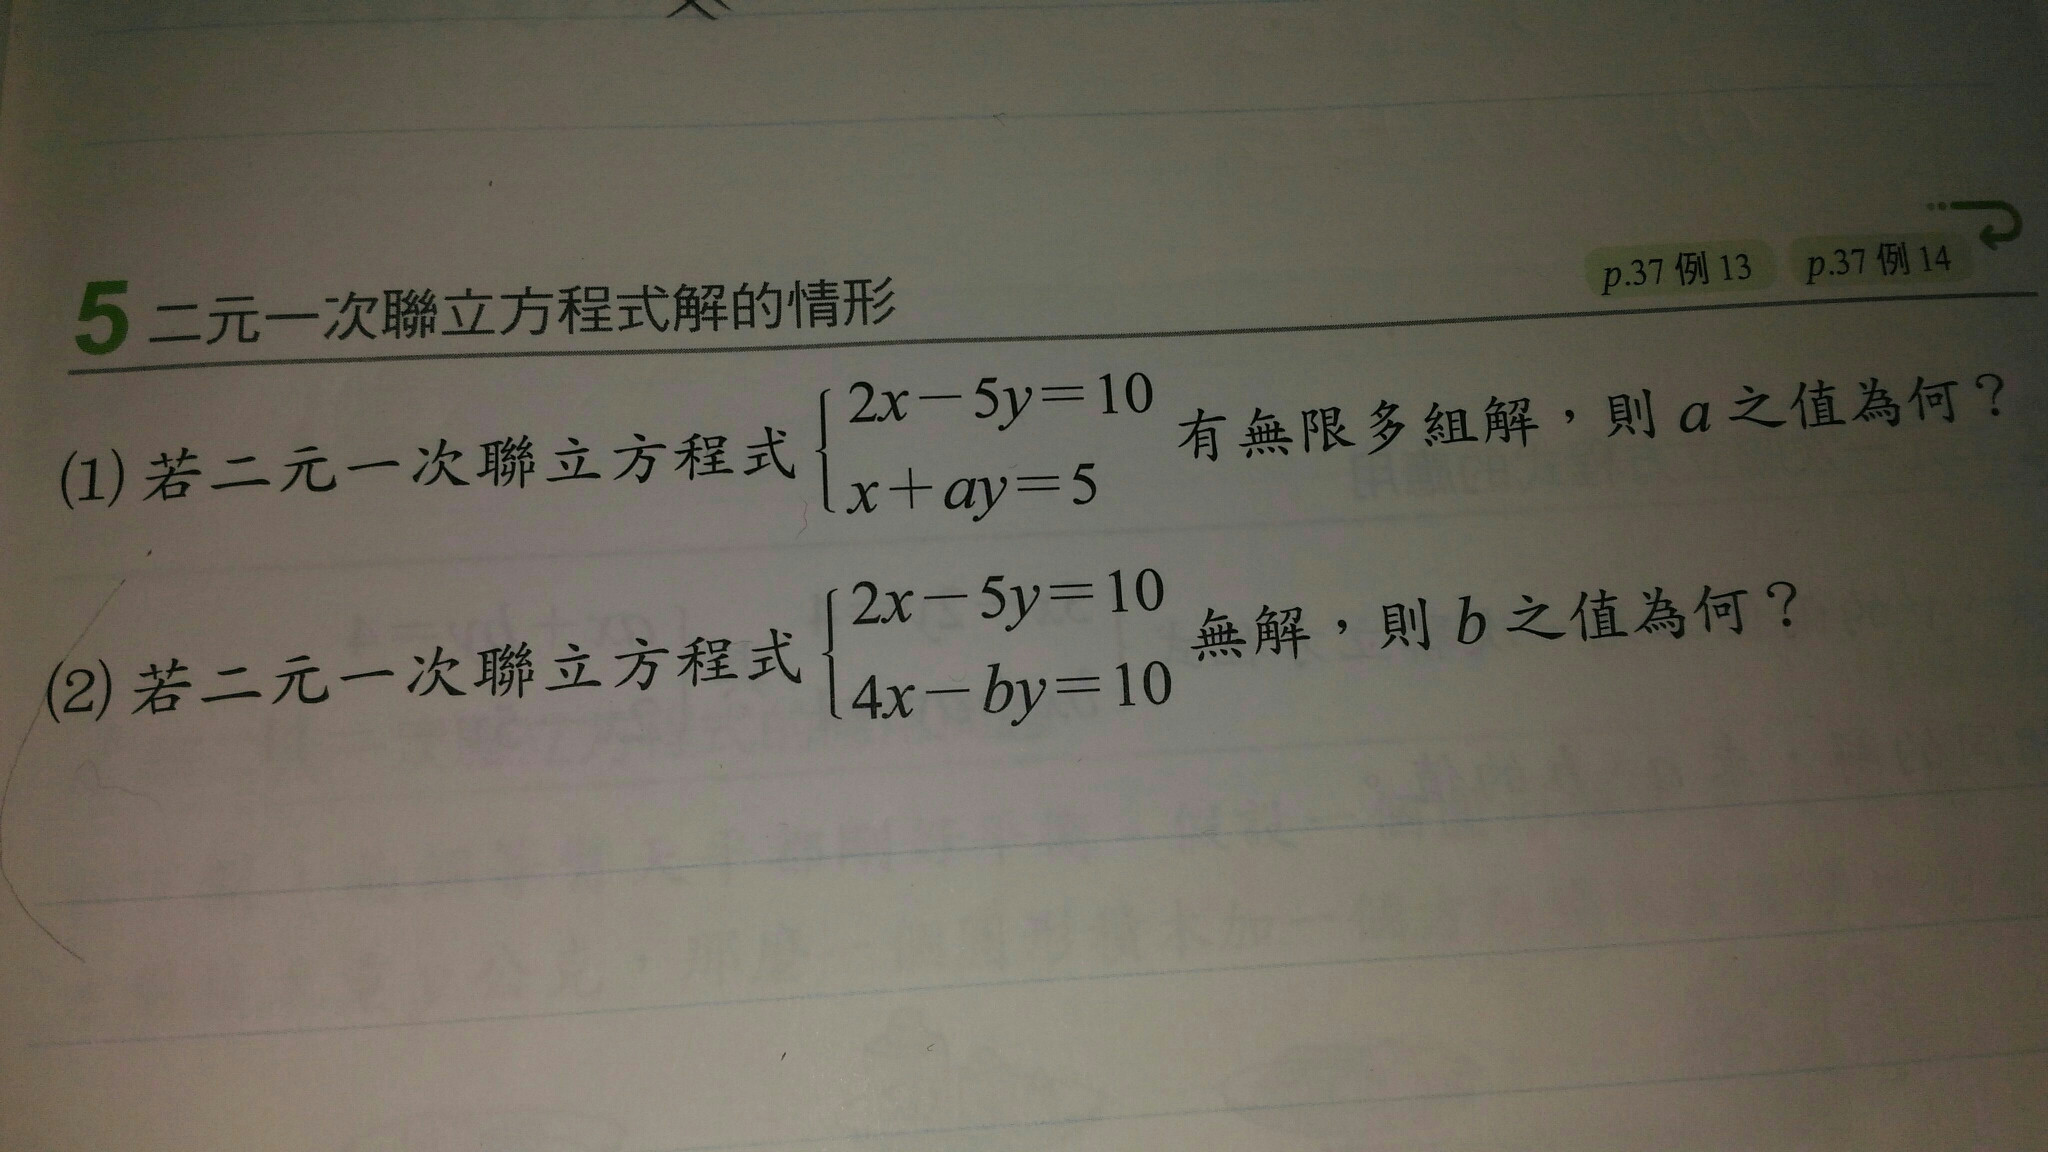 p.37 例 13 p.37 例 14
5 二元一次聯立方程式解的情形
(1) 若二元一次聯立方程式 { 2x－5y＝10
x＋ay＝5 有無限多組解，則 a 之值為何？
(2) 若二元一次聯立方程式 { 2x－5y＝10
4x－by＝10 無解，則 b 之值為何？